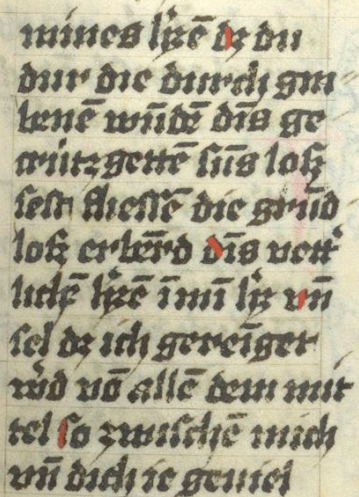 mines h̓zē dz du
dur die durch gra
benē wu̅dē dīs ge
crützgettē sūs losz
sest fliessē die grūd
losz erbērd dīs vett̓
lichē h̓zē ī mī h̓z vn̄
sel dz ich gereīget
w̓d vō allē dem mit
tel so zwischē mich
vn̄ dich ie geviel